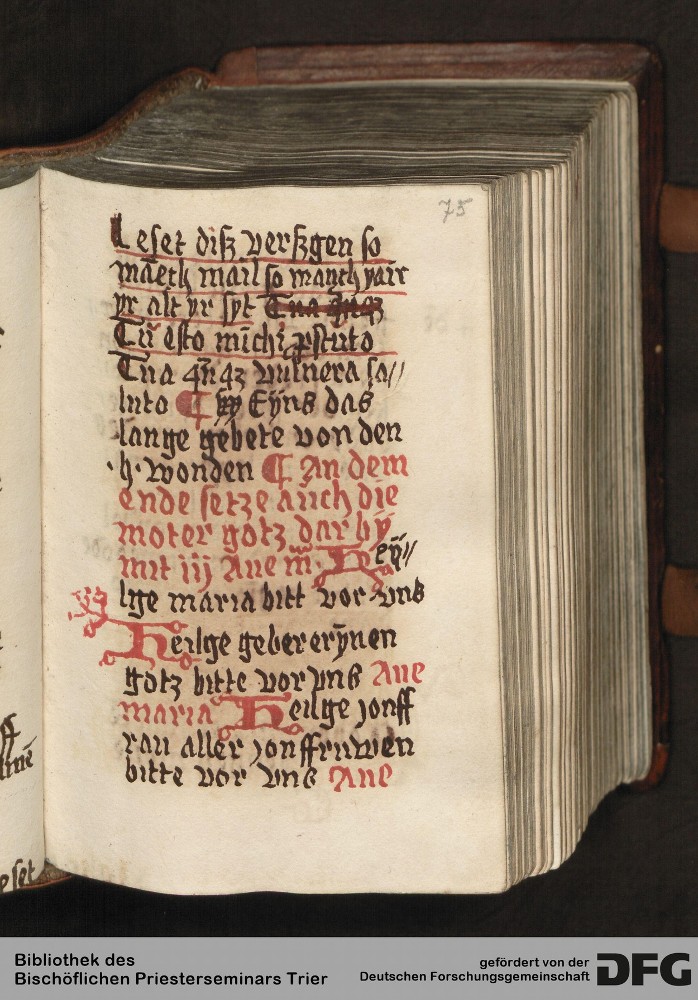 75
Leset disz verszgen so
mãech mail so manch yair
yr alt yr syt Tua
Tu esto michi
Tua vulnera sa//
luto Eyns das
lange gebete von den
·h· wonden An dem
ende setze auch die
moter gotz dar by
mit iij Aue m̃. Hey//
lge maria bitt vor vns
Heilge gebererynen
gotz bitte vor vns Aue
maria Heilge jonff
rau aller jonffruwen
bitte vor vns Aue
eset
Bibliothek des
Bischöflichen Priesterseminars Trier
gefördert von der
Deutschen Forschungsgemeinschaft DFG